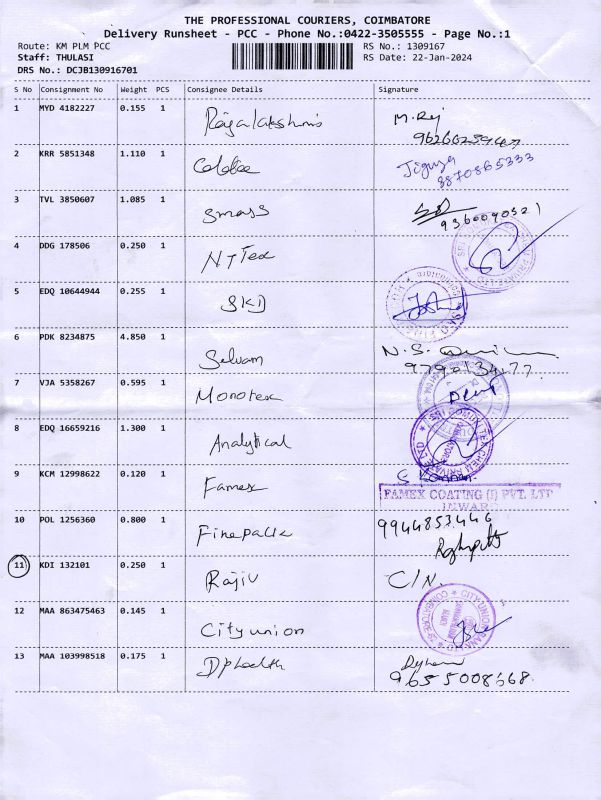 THE PROFESSIONAL COURIERS, COIMBATORE
Delivery Runsheet - PCC - Phone No.:0422-3505555 - Page No.:1
Route: KM PLM PCC
RS No.: 1309167
Staff: THULASI
RS Date: 22-Jan-2024
DRS No.: DCJB130916701
S No Consignment No Weight PCS Consignee Details Signature
1 MYD 4182227 0.155 1 Rajalakshmi M. Raj
2 KRR 5851348 1.110 1 Jiguya
8870865333
3 TVL 3850607 1.085 1 Smass
9360090321
4 DDG 178506 0.250 1 NT Tex
5 EDQ 10644944 0.255 1 SKD
6 PDK 8234875 4.850 1 Selvam N.S.
9790134177
7 VJA 5358267 0.595 1 Monotex
8 EDQ 16659216 1.300 1 Analytical
9 KCM 12998622 0.120 1 Famex
FAMEX COATING (I) PVT. LTD
INWARD
10 POL 1256360 0.800 1 Finepack 9944853446
11 KDI 132101 0.250 1 Rajiv C/N.
12 MAA 863475463 0.145 1 City union
CITY UNION BANK
COIMBATORE
13 MAA 103998518 0.175 1 DP health
9655008668